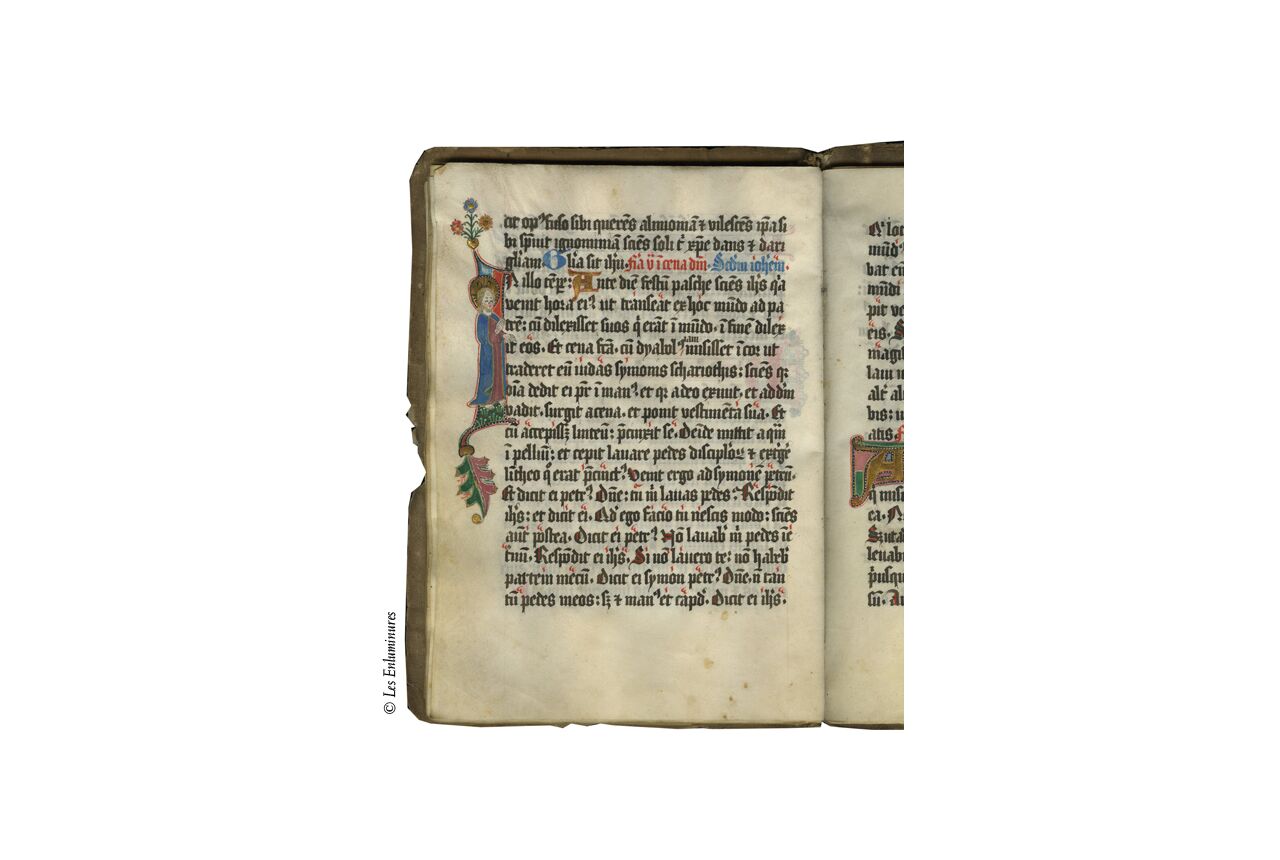 cit op᾽ falso sibi querēs alimoniā ⁊ vilescēs ip̄a si
bi sp̄nit ignominiā sciēs soli t͛ xp̄e dans ⁊ dari
gl͛iam. Gl͛ia sit ihu. fͥa v ī cena dm̄. Scd̄m ioh̄em.
In illo tēp͛: Ante diē festū pasche sciēs ih̄s q͛a
venit hora ei᾽ ut trāseāt ex hoc mūdo ad pa
trē: cū dilexisset suos q͛ erāt ī mūdo, ī finē dilex
it eos. Et cena fc̄ā. cū dyabol᾽ iam misisset ī cor ut
traderet eū iudās symonis schariothis: sciēs qꝛ
oīa dedit ei pr̄ ī man᾽. et qꝛ a deo exiuit, et ad dm̄
vadit. surgit a cena. et ponit vestimēta sua. Et
cū accepissꝫ linteū: p̄cinxit se. Deīde mittit aquā
ī pelluī: et cepit lavare pedes disciploꝝ ⁊ ext͛ge͛
lītheo q͛ erat p̄cinct᾽. Venit ergo ad symonē petrū.
Et dicit ei petr᾽. Dn̄e: tu m͛ lavas pedes? Respōdit
ih̄s: et dicit ei. Qd͛ ego facio tu nescis modo: sciēs
aūt postea. Dicit ei petr᾽. Nō lavab͛ m͛ pedes ī e
tnū. Respōdit ei ih̄s. Si nō lavero te: nō habeb͛
partem mecū. Dicit ei symon petr᾽. Dn̄e. n̄ tan
tū pedes meos: sꝫ ⁊ man᾽ et capd͛. Dicit ei ih̄s.
mūd᾽
vat eū
mūdi
eis.
bis: u
atis
ea.
© Les Enluminures